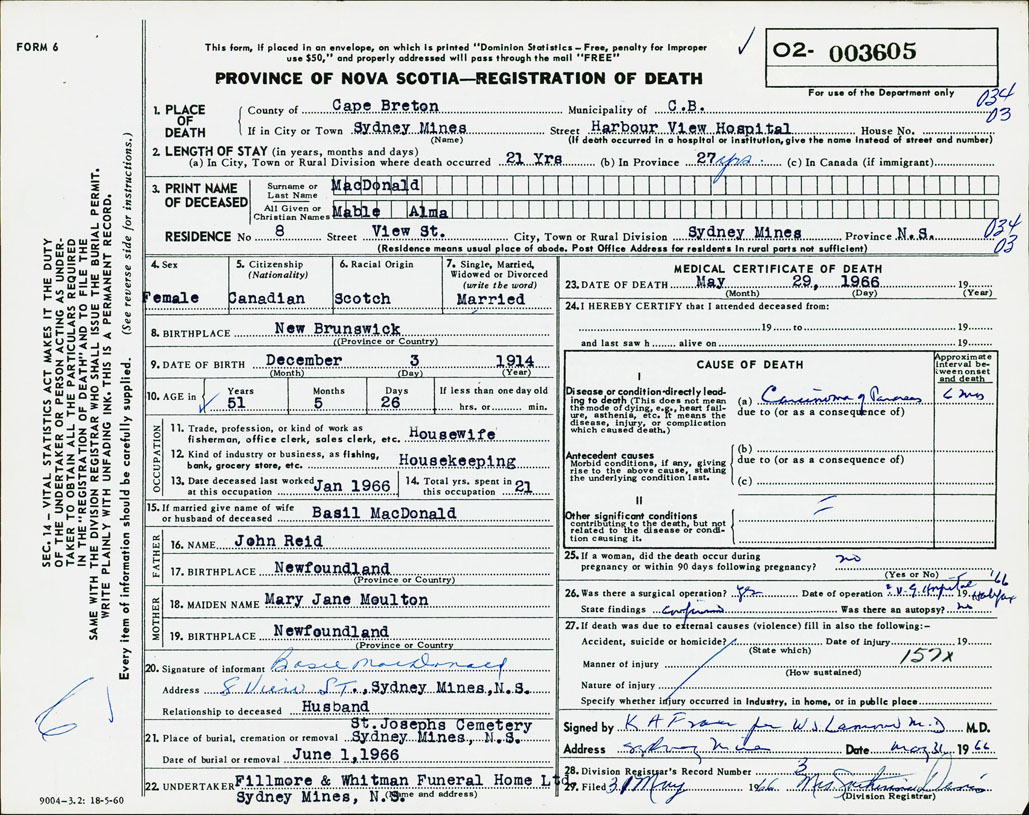 FORM 6
This form, if placed in an envelope, on which is printed "Dominion Statistics – Free, penalty for improper
use $50," and properly addressed will pass through the mail "FREE"
PROVINCE OF NOVA SCOTIA—REGISTRATION OF DEATH
✓
02- 003605
For use of the Department only
034
03
1. PLACE OF DEATH
County of Cape Breton Municipality of C.B.
If in City or Town Sydney Mines Street Harbour View Hospital House No.
(Name) (If death occurred in a hospital or institution, give the name instead of street and number)
2. LENGTH OF STAY (in years, months and days)
(a) In City, Town or Rural Division where death occurred 21 Yrs (b) In Province 27 yrs. (c) In Canada (if immigrant)
3. PRINT NAME OF DECEASED
Surname or Last Name MacDonald
All Given or Christian Names Mable Alma
RESIDENCE No 8 Street View St. City, Town or Rural Division Sydney Mines Province N.S.
034
03
(Residence means usual place of abode. Post Office Address for residents in rural parts not sufficient)
4. Sex
Female
5. Citizenship
(Nationality)
Canadian
6. Racial Origin
Scotch
7. Single, Married,
Widowed or Divorced
(write the word)
Married
8. BIRTHPLACE New Brunswick
((Province or Country)
9. DATE OF BIRTH December 3 1914
(Month) (Day) (Year)
10. AGE in Years Months Days If less than one day old
✓ 51 5 26 hrs. or min.
OCCUPATION
11. Trade, profession, or kind of work as
fisherman, office clerk, sales clerk, etc. Housewife
12. Kind of industry or business, as fishing,
bank, grocery store, etc. Housekeeping
13. Date deceased last worked
at this occupation Jan 1966
14. Total yrs. spent in
this occupation 21
15. If married give name of wife
or husband of deceased Basil MacDonald
FATHER
16. NAME John Reid
17. BIRTHPLACE Newfoundland
(Province or Country)
MOTHER
18. MAIDEN NAME Mary Jane Moulton
19. BIRTHPLACE Newfoundland
(Province or Country
20. Signature of informant Basil MacDonald
Address 8 View ST., Sydney Mines, N.S.
Relationship to deceased Husband
St. Josephs Cemetery
21. Place of burial, cremation or removal Sydney Mines, N.S.
Date of burial or removal June 1, 1966
22. UNDERTAKER Fillmore & Whitman Funeral Home Ltd.
Sydney Mines, N.S.
(Name and address)
MEDICAL CERTIFICATE OF DEATH
23. DATE OF DEATH May 29, 1966 19
(Month) (Day) (Year)
24. I HEREBY CERTIFY that I attended deceased from:
19 to 19
and last saw h alive on 19
CAUSE OF DEATH
Approximate
interval be-
tween onset
and death
I
Disease or condition directly lead-
ing to death (This does not mean
the mode of dying, e.g., heart fail-
ure, asthenia, etc. It means the
disease, injury, or complication
which caused death.)
(a) Carcinoma of Pancreas 6 mos
due to (or as a consequence of)
Antecedent causes
Morbid conditions, if any, giving
rise to the above cause, stating
the underlying condition last.
(b)
due to (or as a consequence of)
(c)
II
Other significant conditions
contributing to the death, but not
related to the disease or condi-
tion causing it.
25. If a woman, did the death occur during
pregnancy or within 90 days following pregnancy? no
(Yes or No)
26. Was there a surgical operation? Yes Date of operation V.G. Hospital 19 '66 Halifax
State findings confirmed Was there an autopsy? no
27. If death was due to external causes (violence) fill in also the following:-
Accident, suicide or homicide? Date of injury 19
(State which)
157x
Manner of injury
(How sustained)
Nature of injury
Specify whether injury occurred in industry, in home, or in public place
Signed by K A Fraser for M.D M.D.
Address Sydney Mines Date May 31 1966
28. Division Registrar's Record Number 3
29. Filed 31 May 1966 Mrs
(Division Registrar)
SEC. 14 – VITAL STATISTICS ACT MAKES IT THE DUTY
OF THE UNDERTAKER OR PERSON ACTING AS UNDER-
TAKER TO OBTAIN ALL THE PARTICULARS REQUIRED
IN THE "REGISTRATION OF DEATH" AND TO FILE THE
SAME WITH THE DIVISION REGISTRAR WHO SHALL ISSUE THE BURIAL PERMIT.
WRITE PLAINLY WITH UNFADING INK. THIS IS A PERMANENT RECORD.
Every item of information should be carefully supplied. (See reverse side for instructions.)
9004-3.2: 18-5-60